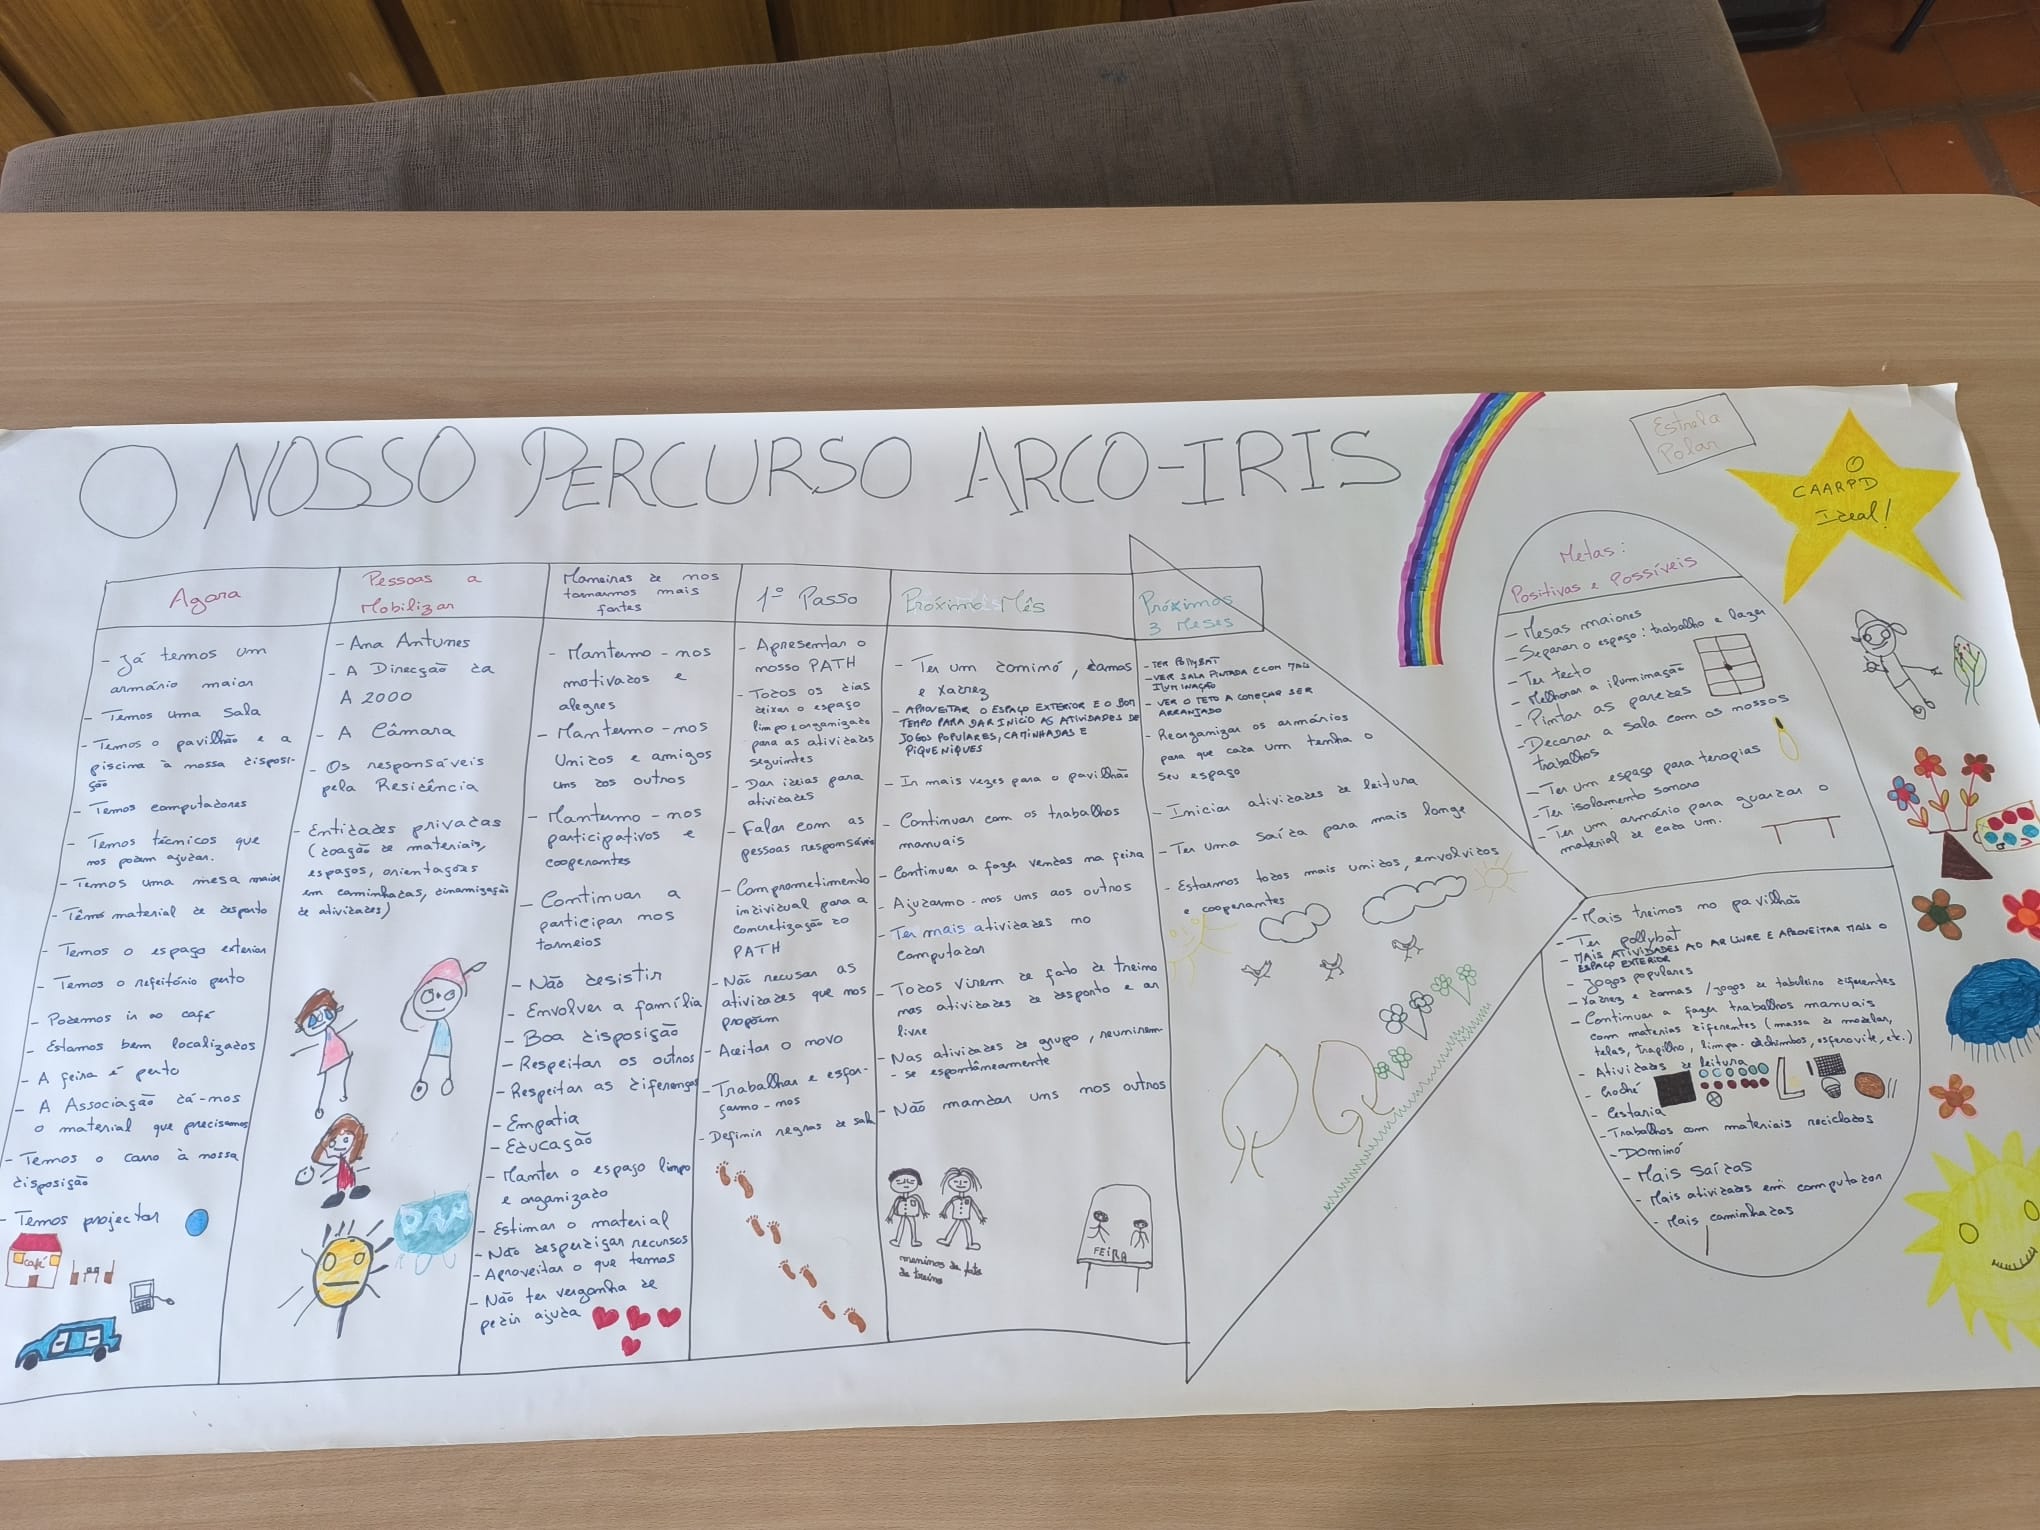 O NOSSO PERCURSO ARCO-IRIS
Estrela
Polar
O
CAARPD
Ideal!
Agora
- Já temos um
armário maior
- Temos uma Sala
- Temos o pavilhão e a
piscina à nossa disposi-
ção
- Temos computadores
- Temos técnicos que
nos podem ajudar.
- Temos uma mesa maior
- Temos material de desporto
- Temos o espaço exterior
- Temos o refeitório perto
- Podemos ir ao café
- Estamos bem localizados
- A feira é perto
- A Associação dá-nos
o material que precisamos
- Temos o carro à nossa
disposição
- Temos projector
café
Pessoas a
Mobilizar
- Ana Antunes
- A Direcção da
A 2000
- A Câmara
- Os responsáveis
pela Residência
- Entidades privadas
(doação de materiais,
espaços, orientações
em caminhadas, dinamização
de atividades)
Maneiras de nos
tornarmos mais
fortes
- Mantermo-nos
motivados e
alegres
- Mantermo-nos
Unidos e amigos
uns dos outros
- Mantermo-nos
participativos e
cooperantes
- Continuar a
participar nos
torneios
- Não desistir
- Envolver a família
- Boa disposição
- Respeitar os outros
- Respeitar as diferenças
- Empatia
- Educação
- Manter o espaço limpo
e organizado
- Estimar o material
- Não desperdiçar recursos
- Aproveitar o que temos
- Não ter vergonha de
pedir ajuda
1º Passo
- Apresentar o
nosso PATH
- Todos os dias
deixar o espaço
limpo e organizado
para as atividades
seguintes
- Dar ideias para
atividades
- Falar com as
pessoas responsáveis
- Comprometimento
individual para a
concretização do
PATH
- Não recusar as
atividades que nos
propõem
- Aceitar o novo
- Trabalhar e esfor-
çarmo-nos
- Definir regras de sala
Próximo Mês
- Ter um dominó, damas
e xadrez
- APROVEITAR O ESPAÇO EXTERIOR E O BOM
TEMPO PARA DAR INICIO AS ATIVIDADES DE
JOGOS POPULARES, CAMINHADAS E
PIQUENIQUES
- Ir mais vezes para o pavilhão
- Continuar com os trabalhos
manuais
- Continuar a fazer vendas na feira
- Ajudarmo-nos uns aos outros
- Ter mais atividades no
computador
- Todos virem de fato de treino
nas atividades de desporto e ar
livre
- Nas atividades de grupo, reunirem-
-se espontâneamente
- Não mandar uns nos outros
meninos de fato
de treino
FEIRA
Próximos
3 Meses
- TER POLLYBAT
- VER SALA PINTADA E COM MAIS
ILUMINAÇÃO
- VER O TETO A COMEÇAR SER
ARRANJADO
- Reorganizar os armários
para que cada um tenha o
seu espaço
- Iniciar atividades de leitura
- Ter uma saída para mais longe
- Estarmos todos mais unidos, envolvidos
e cooperantes
Metas:
Positivas e Possíveis
- Mesas maiores
- Separar o espaço: trabalho e lazer
- Ter tecto
- Melhorar a iluminação
- Pintar as paredes
- Decorar a sala com os nossos
trabalhos
- Ter um espaço para terapias
- Ter isolamento sonoro
- Ter um armário para guardar o
material de cada um.
- Mais treinos no pavilhão
- Ter pollybat
- MAIS ATIVIDADES AO AR LIVRE E APROVEITAR MAIS O
ESPAÇO EXTERIOR
- Jogos populares
- Xadrez e damas / jogos de tabuleiro diferentes
- Continuar a fazer trabalhos manuais
com materias diferentes (massa de modelar,
telas, trapilho, limpa-cachimbos, esferovite, etc.)
- Atividades de leitura
- Croché
- Cestaria
- Trabalhos com materiais reciclados
- Dominó
- Mais saídas
- Mais atividades em computador
- Mais caminhadas